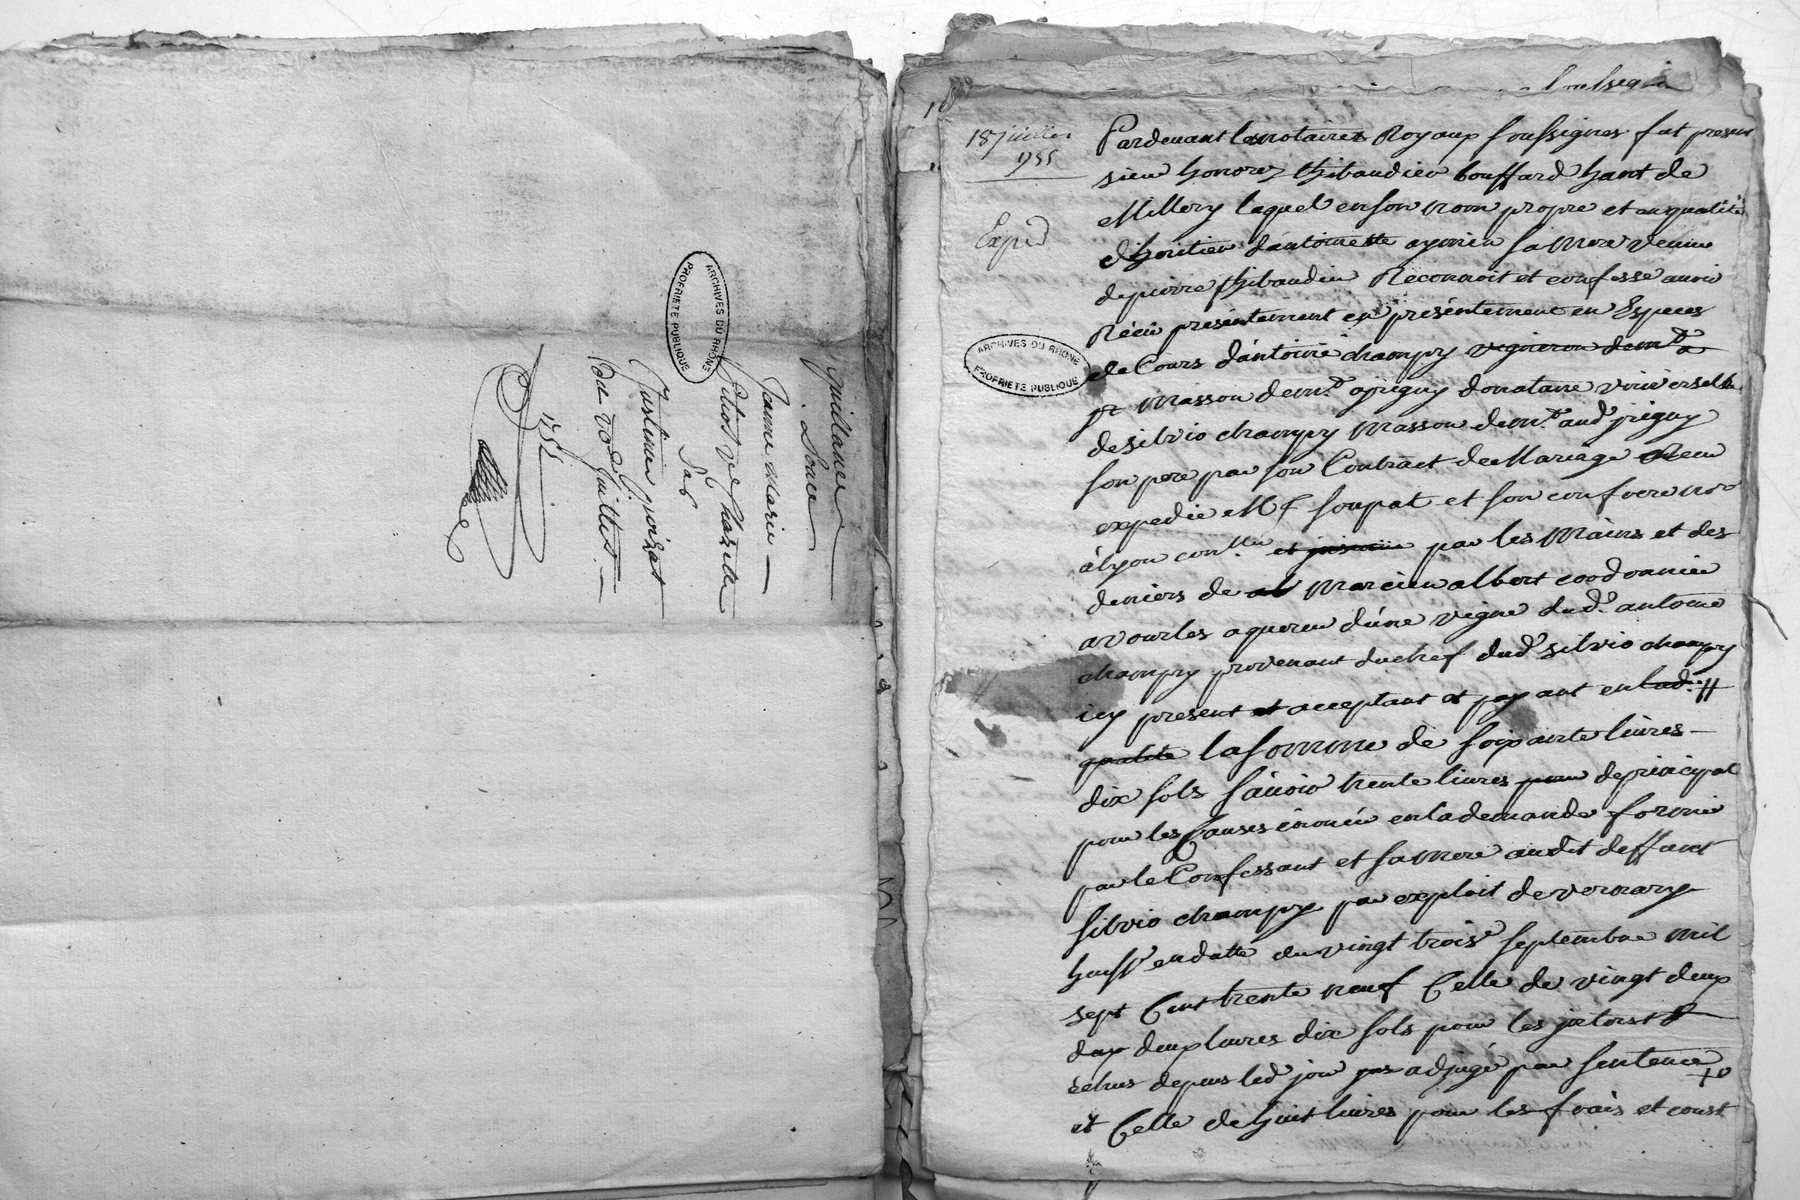 quittance
Donée
Jeanne Marie
Vve
Par
1755
ARCHIVES DU RHONE
PROPRIETE PUBLIQUE
18 juillet
1755
Expéd
ARCHIVES DU RHONE
PROPRIETE PUBLIQUE
Pardevant les notaires Royaux soussignes fut present
sieur honoré thibaudier bouffard hant de
Millery lequel en son nom propre et en qualité
d'heritier d'antoinette sa mere veuve
de pierre thibaudier Reconnoit et confesse avoir
Réçû presentement en présentement en Especes
de Cours d'antoine champy vigneron demt a
masson demt a jrigny donataire universelle
de silvio champy masson demt aud jrigny
son pere par son Contract de Mariage Receu
expedie Me soupat et son confrere nore
à lyon par les Mains et des
deniers de Marcien albert cordonnier
a vourles aquereur d'une vigne dud. antoine
champy provenant du chef dud silvio champy
icy present et acceptant et payant en lad.
qualité la somme de soixante livres
dix sols sçavoir trente livres pour de principal
pour les Causes énoncée en la demande formée
par le Confessant et sa mere audit deffunt
silvio champy par exploit de vernary
huissr en datte du vingt trois septembre mil
sept Cent trente neuf Celle de vingt deux
deux livres dix sols pour les jnterst
échus depuis led jour adjugé par sentence
et Celle de huit livres pour les frais et coust